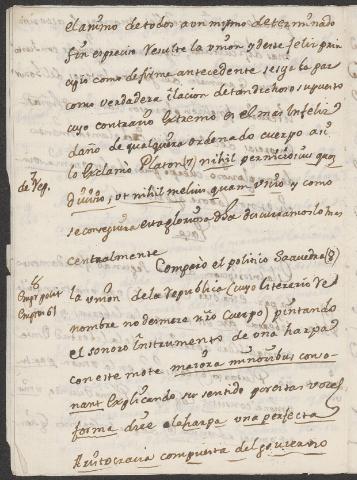 el animo de todos a un mismo determinado
fin es preciso resulte la union y de este feliz prin
cipio como de firme antecedente se sigue la paz
como verdadera ilacion de tan dichoso supuesto
cuyo contrario extremo es el mas infeliz
daño de qualquiera ordenado cuerpo asi
lo exclamo Platon (7) nihil perniciosius quam
7
de Rep.
divitio, ut nihil melius quam unio y como
se conseguira esta gloriosa dha discurramos lo mas
centralmente
Comparò el politico Saavedra (8)
8
Empr polit
Empres 61
la union de la republica (cuyo literario re
nombre no desmerece nro cuerpo) pintando
el sonoro instrumento de una harpa
con este mote maiora minoribus conso-
nant explicando su sentido por estas voces
forma dice el harpa una perfecta
Aristocracia compuesta del govierno